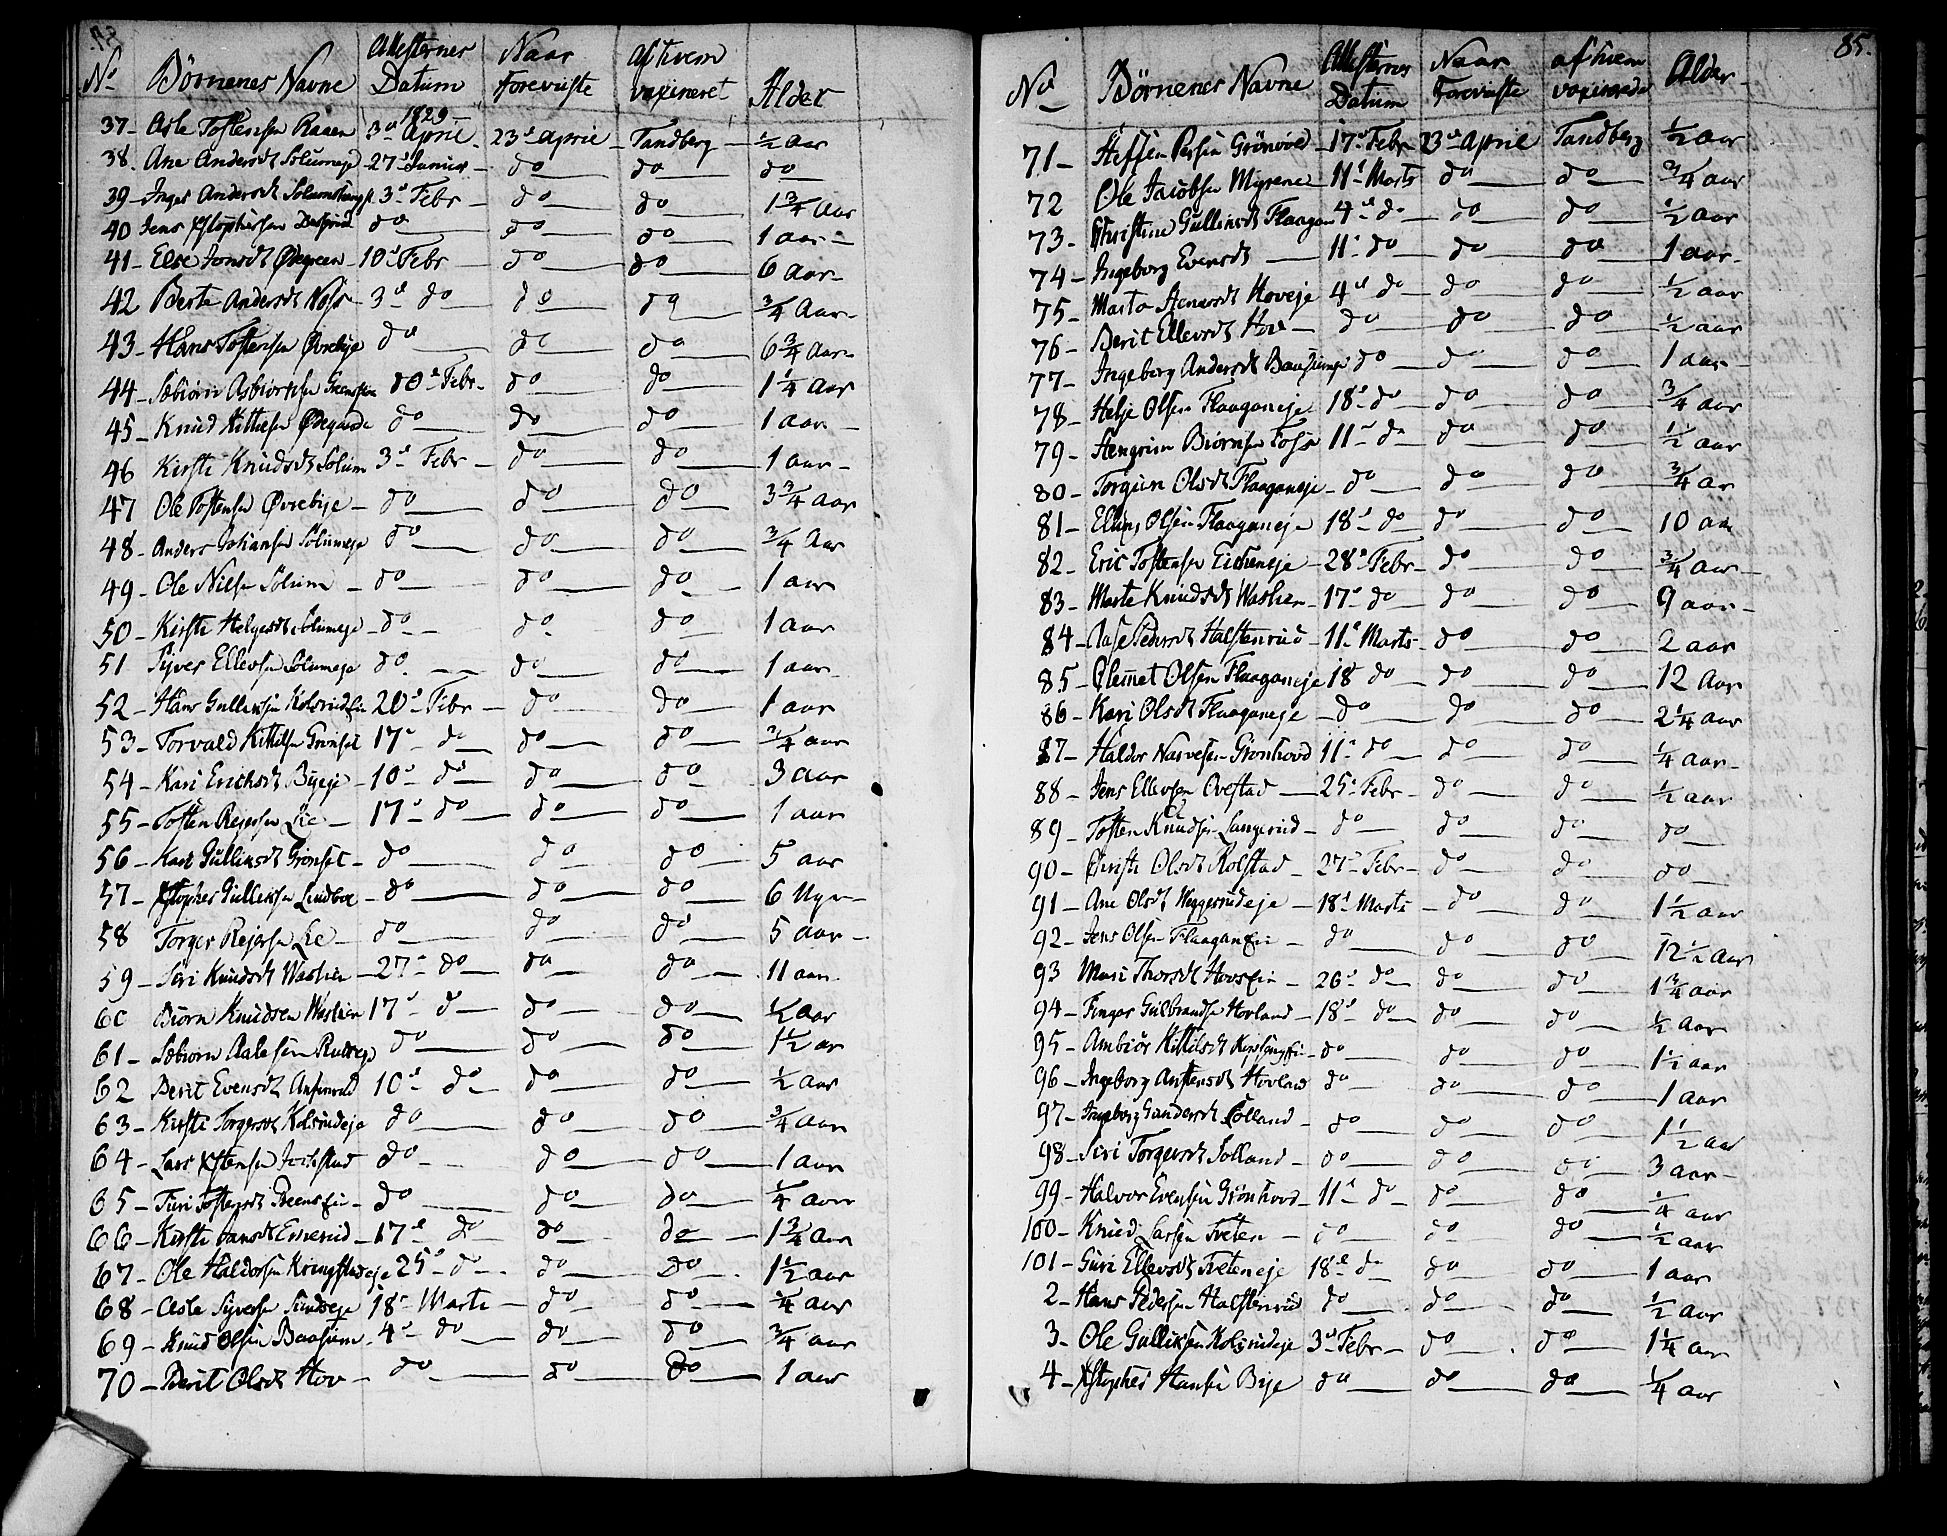 No Börnenes Navne Attesternes Datum Naar Foreviiste af hvem vaxineret Alder
1829
37- Asle Tostensen Raaen 3d April 23d April Tandberg ½ aar
38. Ane Andersdt Solumeje 27d do do do
39- Inger Andersdt 3d Febr do do 1¾ aar
40 Jens Xstophersen do do do 1 aar
41- Else Jonsdt Ødegreen 10d Febr do do 6 aar
42 Berte Andersdt 3d do do do ¾ aar
43- Hans Tostensen Øvrebye do do do 6¾ aar
44- Sebiörn Asbiörnsen 10d Febr do do 1¼ aar
45- Knud Kittelsen Ødegaarde do do do 1 aar
46 Kirsti Knudsdt Solum 3d Febr do do 1 aar
47 Ole Tostensen Øvrebye do do do 3¾ aar
48- Anders Johansen Solumeje do do do ¾ aar
49- Ole Nilsen Solum do do do 1 aar
50- Kirsti Helgesdt Solumeje do do do 1 aar
51 Syver Ellevsen Solumeje do do do 1 aar
52- Hans Gulliksen 20d Febr do do 1 aar
53- Torvald Kittilsen Grönset 17d do do do ¾ aar
54- Kari Ericksdt Byeeje 10d do do do 3 aar
55- Tosten Rejersen Lie 17d do do do 1 aar
56- Kari Gulliksdt Grönset do do do 5 aar
57- Xstopher Gulliksen Lindboe do do do 6 Uger
58 Torger Rejersen Lie do do do 5 aar
59- Siri Knudsdt Waslien 27d do do do 11 aar
60 Biörn Knudsen Waslien 17d do do do ½ aar
61- Sebiörn Aslesen do do do 1½ ar
62 Berit Evensdt 10d do do do ½ aar
63- Kirsti Torgersdt Kolsrudeje do do do ¾ aar
64- Lars Xstensen do do do 1 aar
65- Turi Tostensdt do do do ¼ aar
66- Kirsti Jansdt 17d do do do 1¾ aar
67- Ole Haldorsen 25d do do do 1½ aar
68- Asle Syversen 18d Marts do do ¼ aar
69- Knud Olsen Baasum 4d do do do ¾ aar
70- Berit Olsdt Hov do do do 1 aar
85.
No Börnenes Navne Attesternes Datum Naar Foreviiste af hvem vaxinerede Alder
71- Steffen 17d Febr 23d April Tandberg ½ aar
72 Ole Jacobsen Myrene 11d Marts do do ¾ aar
73- Christine Gulliksdt Flaagan 4d do do do ½ aar
74- Ingeborg Evensdt 11d do do do 1 aar
75- Marta Hoveje 4d do do do ½ aar
76- Berit Ellevsdt Hov do do do ½ aar
77- Ingeborg Andersdt do do do 1 aar
78- Helje Olsen Flaaganeje 18d do do do ¾ aar
79- Hengrim Biörnsen 11d do do do ½ aar
80- Torgun Olsdt Flaaganeje do do do ¾ ar
81- Elling Olsen Flaaganeje 18d do do do 10 aar
82- Eric Tostensen 28d Febr do do ¾ aar
83- Marte Knudsdt Waslien 17d do do do 9 aar
84- Aase Pedersdt Halstenrud 11d Marts do do 2 aar
85- Clemet Olsen Flaaganeje 18 do do do 12 aar
86- Kari Olsdt Flaaganeje do do do 2¼ aar
87- Haldor Narvesen Grönhovd 11d do do do ¼ aar
88- Jens Ellevsen 25d Febr do do ½ aar
89- Tosten Knudsen Langerud do do do do
90- Christi Olsdt Rolstad 27d Febr do do do
91- Ane Olsdt Heggerudeje 18d Marts do do 1½ aar
92- Jens Olsen do do do 12½ aar
93 Mari Thorsdt 26d do do do 1¾ aar
94- Finger Gulbrandsen Hovland 18d do do do ½ aar
95- Ambiör Kittilsdt do do do 1½ aar
96- Ingeborg Hovland do do do 1 aar
97- Ingeborg Gundersdt Solland do do do 1½ aar
98- Siri Torgersdt Solland do do do 3 aar
99- Halvor Evensen Grönhovd 11d do do do ¼ aar
100- Knud Larsen Tveten do do do ½ aar
101- Guri Ellevsdt Tveteneje 18d do do do 1 aar
2- Hans Pedersen Halstenrud do do do ½ aar
3- Ole Gulliksen Kolsrudeje 3d Febr do do 1¼ ar
4- Xstopher Hansen Bye do do do ¼ aar